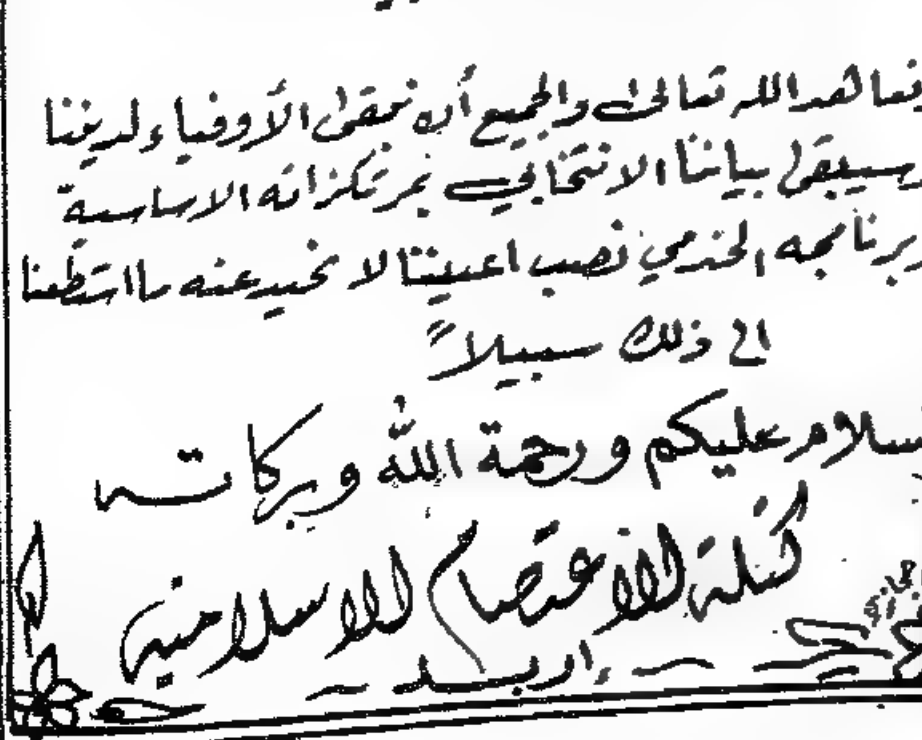 نعاهد الله تعالى والجميع أن نبقى الأوفياء لديننا
وسيبقى بياننا الانتخابي بمرتكزاته الاساسية
وبرنامجه الخدمي نصب اعيننا لا نحيد عنه ما استطعنا
الى ذلك سبيلاً
السلام عليكم ورحمة الله وبركاته
كتلة الاعتصام الاسلامية
- اربد -